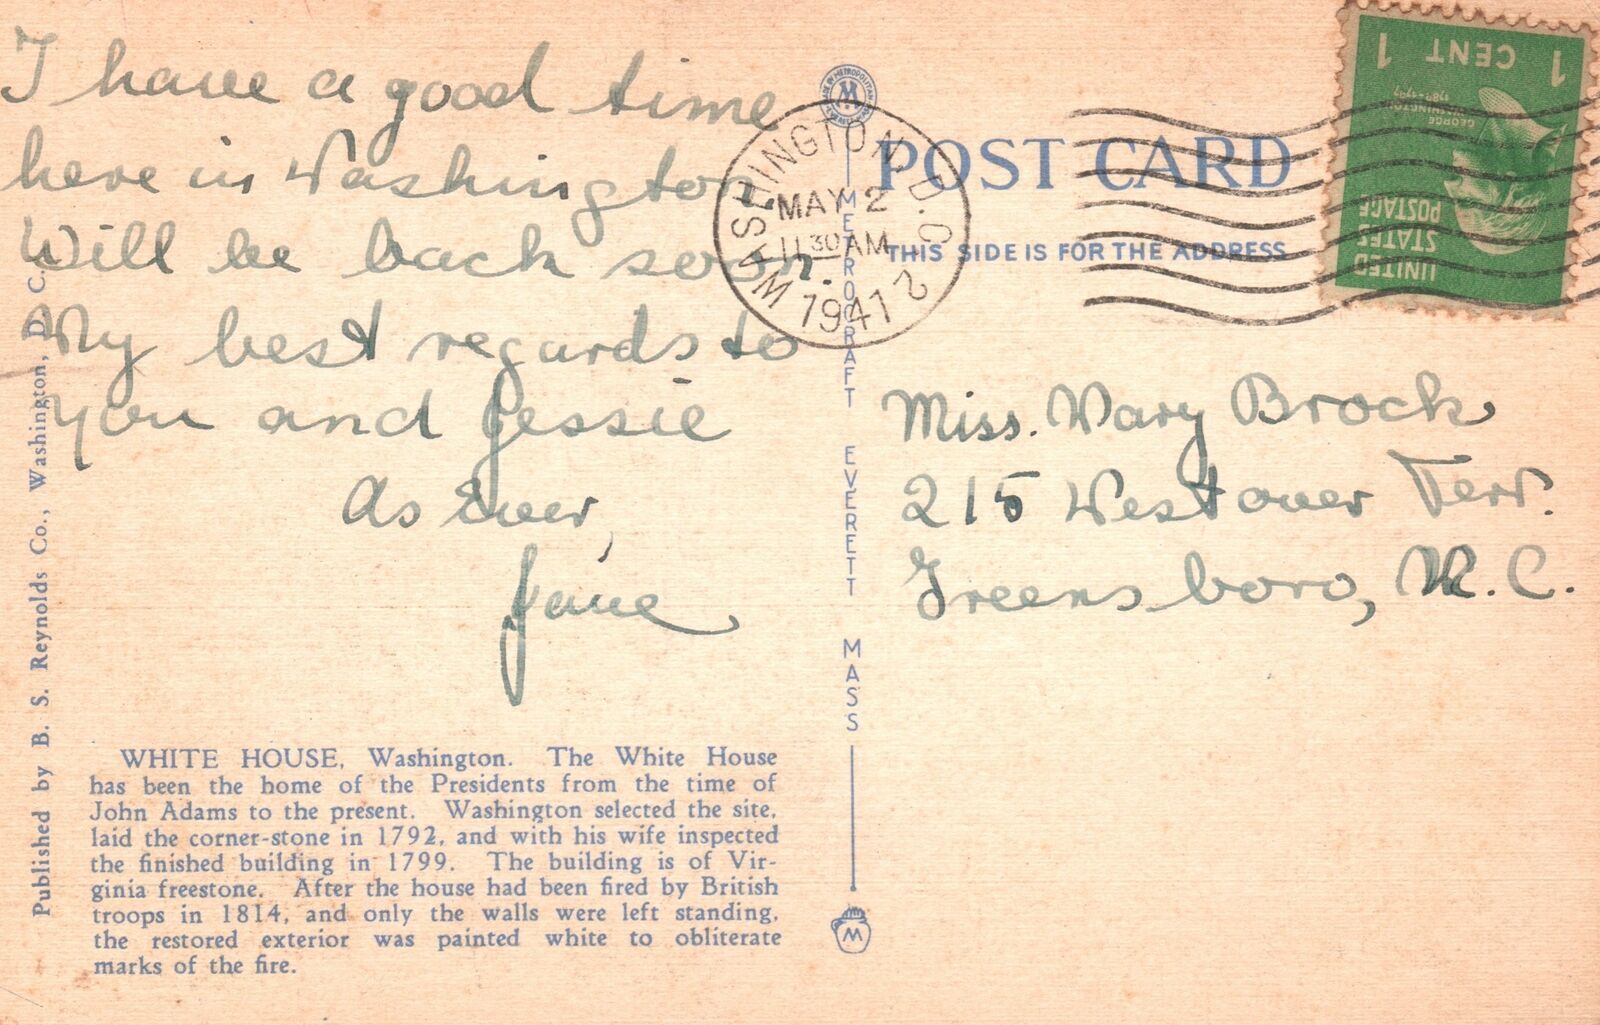 I have a good time
here in Washington
Will be back soon.
My best regards to
you and Jessie
As Ever,
Jane
Published by B. S. Reynolds Co., Washington, D. C.
WHITE HOUSE, Washington. The White House
has been the home of the Presidents from the time of
John Adams to the present. Washington selected the site,
laid the corner-stone in 1792, and with his wife inspected
the finished building in 1799. The building is of Vir-
ginia freestone. After the house had been fired by British
troops in 1814, and only the walls were left standing,
the restored exterior was painted white to obliterate
marks of the fire.
M
METROCRAFT EVERETT MASS
M
WASHINGTON, D.C. 2
MAY 2
11 30 AM
1941
POST CARD
THIS SIDE IS FOR THE ADDRESS
UNITED
STATES
POSTAGE
GEORGE
WASHINGTON
1789-1797
1 CENT 1
Miss. Mary Brock
215 Westover Terr.
Greensboro, N.C.